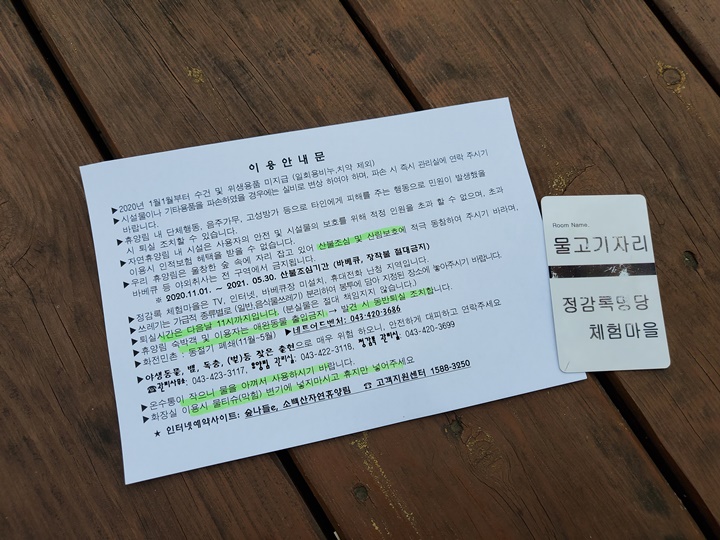 이 용 안 내 문
▶2020년 1월1부터 수건 및 위생용품 미지급 (일회용비누,치약 제외)
▶시설물이나 기타용품을 파손하였을 경우에는 실비로 변상 하여야 하며, 파손 시 즉시 관리실에 연락 주시기
바랍니다.
▶휴양림 내 단체행동, 음주가무, 고성방가 등으로 타인에게 피해를 주는 행동으로 민원이 발생했을
시 퇴실 조치할 수 있습니다.
▶자연휴양림 내 시설은 사용자의 안전 및 시설물의 보호를 위해 적정 인원을 초과 할 수 없으며, 초과
이용시 인적보험 혜택을 받을 수 없습니다.
▶우리 휴양림은 울창한 숲 속에 자리 잡고 있어 산불조심 및 산림보호에 적극 동참하여 주시기 바라며,
바베큐 등 야외취사는 전 구역에서 금지됩니다.
※ 2020.11.01. ~ 2021. 05.30. 산불조심기간 (바베큐, 장작불 절대금지)
▶정감록 체험마을은 TV, 인터넷, 바베큐장 미설치, 휴대전화 난청 지역입니다.
▶쓰레기는 가급적 종류별로 (일반,음식물쓰레기) 분리하여 봉투에 담아 지정된 장소에 놓아주시기 바랍니다.
▶퇴실시간은 다음날 11시까지입니다. (분실물은 절대 책임지지 않습니다.)
▶휴양림 숙박객 및 이용자는 애완동물 출입금지. → 발견 시 동반퇴실 조치함.
▶화전민촌 : 동절기 폐쇄(11월~5월) ▶네트어드벤처: 043-420-3686
▶야생동물, 뱀, 독충, (벌)등 잦은 출현으로 매우 위험 하오니, 안전하게 대피하고 연락주세요
☎관리사무소: 043-423-3117, 휴양림 관리실: 043-422-3118, 정감록 관리실: 043-420-3699
▶온수통이 작으니 물을 아껴서 사용하시기 바랍니다.
▶화장실 이용시 물티슈(막힘) 변기에 넣지마시고 휴지만 넣어주세요
★ 인터넷예약사이트: 숲나들e, 소백산자연휴양림 ☎ 고객지원센터 1588-3250
Room Name.
물고기자리
정감록명당
체험마을